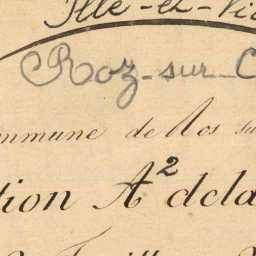 Ille-et-Vi
Roz-sur-C
ommune de Ros su
tion A² dela